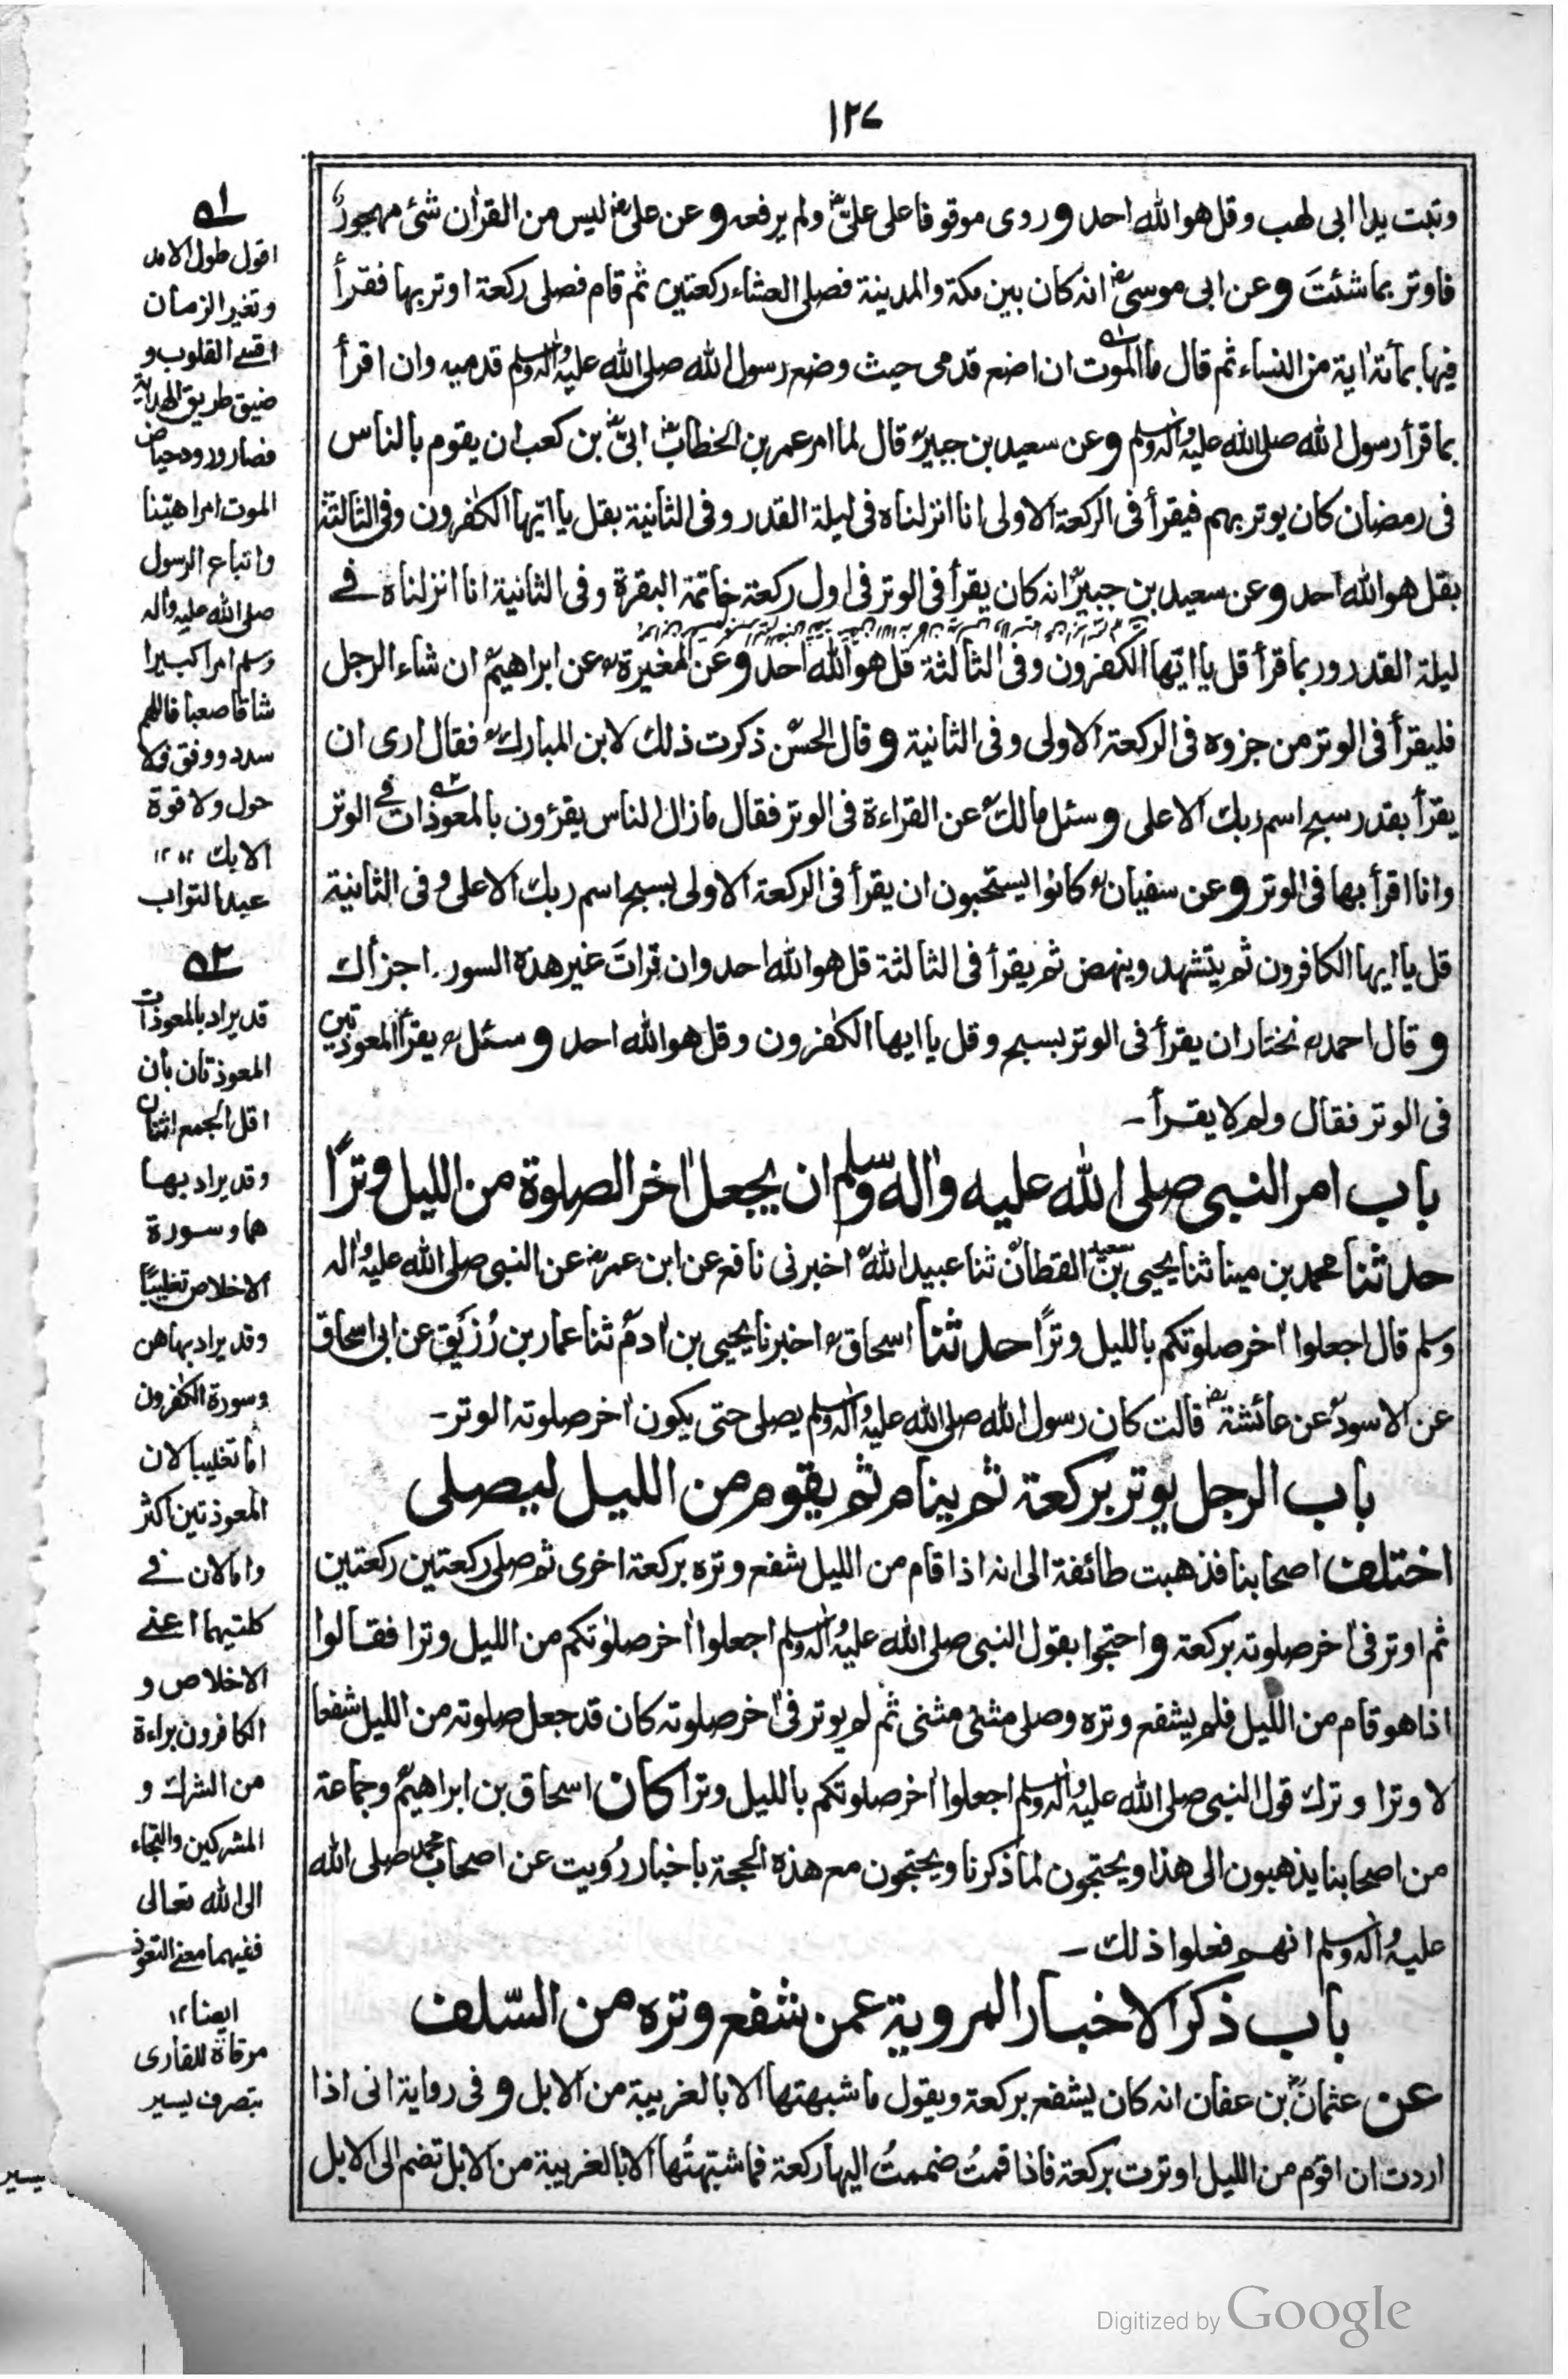 ١٢٧
وتبت يدا ابى لهب وقل هو الله احد وروى موقوفا على علىؓ ولم يرفعه وعن علىؓ ليس من القران شئ مهجورٌ
فاوتر بما شئتَ وعن ابى موسىؓ انه كان بين مكة والمدينة فصلى العشاء ركعتين ثم قام فصلى ركعة اوتر بها فقرأ
فيها بمأئة اٰية من النساء ثم قال ما الموت ان اضع قدمى حيث وضع رسول الله صلى الله عليه واٰله وسلم قدميه وان اقرأ
بما قرأ رسول الله صلى الله عليه واٰله وسلم وعن سعيد بن جبيرؒ قال لما امر عمر بن الخطابؓ ابىّؓ بن كعب ان يقوم بالناس
فى رمضان كان يوتر بهم فيقرأ فى الركعة الاولى انا انزلناه فى ليلة القدر وفى الثانية بقل يا ايّها الكٰفرون وفى الثالثة
بقل هو الله احد وعن سعيد بن جبيرؒ انه كان يقرأ فى الوتر فى اول ركعة خاتمة البقرة وفى الثانية انا انزلناه فى
ليلة القدر وربما قرأ قل يا ايها الكٰفرون وفى الثالثة قل هو الله احد وعن المغيرةؒ عن ابراهيمؒ ان شاء الرجل
فليقرأ فى الوتر من جزوه فى الركعة الاولى وفى الثانية وقال الحسنؒ ذكرت ذلك لابن المباركؒ فقال ارى ان
يقرأ بقدر سبح اسم ربك الاعلى وسئل مالكؒ عن القراءة فى الوتر فقال ما زال الناس يقرؤن بالمعوذات فى الوتر
وانا اقرأ بها فى الوتر وعن سفيانؒ كانوا يستحبون ان يقرأ فى الركعة الاولى بسبح اسم ربك الاعلى وفى الثانية
قل يا ايها الكافرون ثم يتشهد وينهض ثم يقرأ فى الثالثة قل هو الله احد وان قرات غير هذه السور اجزأك
وقال احمدؒ نختار ان يقرأ فى الوتر بسبح وقل يا ايها الكٰفرون وقل هو الله احد وسئلؒ يقرأ المعوذتين
فى الوتر فقال ولم لا يقرأ ـ
باب امر النبى صلى الله عليه واٰله وسلم ان يجعل اٰخر الصلوة من الليل وترًا
حدثنا محمد بن مينا ثنا يحيى بن سعيد القطانؒ ثنا عبيد اللهؒ اخبرنى نافع عن ابن عمرؓ عن النبى صلى الله عليه واٰله
وسلم قال اجعلوا اٰخر صلوتكم بالليل وترًا حدثنا اسحاقؒ اخبرنا يحيى بن اٰدمؒ ثنا عمار بن رُزَيق عن ابى اسحاق
عن الاسودؒ عن عائشةؓ قالت كان رسول الله صلى الله عليه واٰله وسلم يصلى حتى يكون اٰخر صلوته الوتر ـ
باب الرجل يوتر بركعة ثم ينام ثم يقوم من الليل ليصلى
اختلف اصحابنا فذهبت طائفة الى انه اذا قام من الليل شفع وتره بركعة اخرى ثم صلى ركعتين ركعتين
ثم اوتر فى اٰخر صلوته بركعة واحتجوا بقول النبى صلى الله عليه واٰله وسلم اجعلوا اٰخر صلوٰتكم من الليل وترا فقالوا
اذا هو قام من الليل فلم يشفع وتره وصلى مثنى مثنى ثم لم يوتر فى اٰخر صلوته كان قد جعل صلوته من الليل شفعا
لا وترا وترك قول النبى صلى الله عليه واٰله وسلم اجعلوا اٰخر صلوتكم بالليل وترا كان اسحاق بن ابراهيمؒ وجماعة
من اصحابنا يذهبون الى هذا ويحتجون لما ذكرنا ويحتجون مع هذه الحجة باخبار رُويت عن اصحاب محمد صلى الله
عليه واٰله وسلم انهم فعلوا ذلك ـ
باب ذكر الاخبار المروية عمن شفع وتره من السّلف
عن عثمانؓ بن عفان انه كان يشفع بركعة ويقول ما شبهتها الا بالغريبة من الابل وفى رواية انى اذا
اردت ان اقوم من الليل اوترت بركعة فاذا قمتُ ضممتُ اليها ركعة فما شبهتُها الا بالغريبة من الابل تضم الى الابل
؎١
اقول طول الامد
وتغير الزمان
اقسى القلوب و
ضيق طريق الهداية
فصار ورود حياض
الموت امرا هيّنا
واتباع الرسول
صلى الله عليه واٰله
وسلم امرا كبيرا
شاقا صعبا فاللهم
سدد ووفق فلا
حول ولا قوة
الا بك ١٢
عبد التواب
؎٢
قد يراد بالمعوذات
المعوذتان بان
اقل الجمع اثنان
وقد يراد بها
هما وسورة
الاخلاص تغليبًا
وقد يراد بها هن
وسورة الكٰفرون
اما تغليبا لان
المعوذتين اكثر
واما لان فى
كلتيهما اعنى
الاخلاص و
الكافرون براءة
من الشرك و
المشركين والتجاء
الى الله تعالى
ففيهما معنى التعوذ
ايضا ١٢
مرقاة للقارى
بتصرف يسير
Digitized by Google